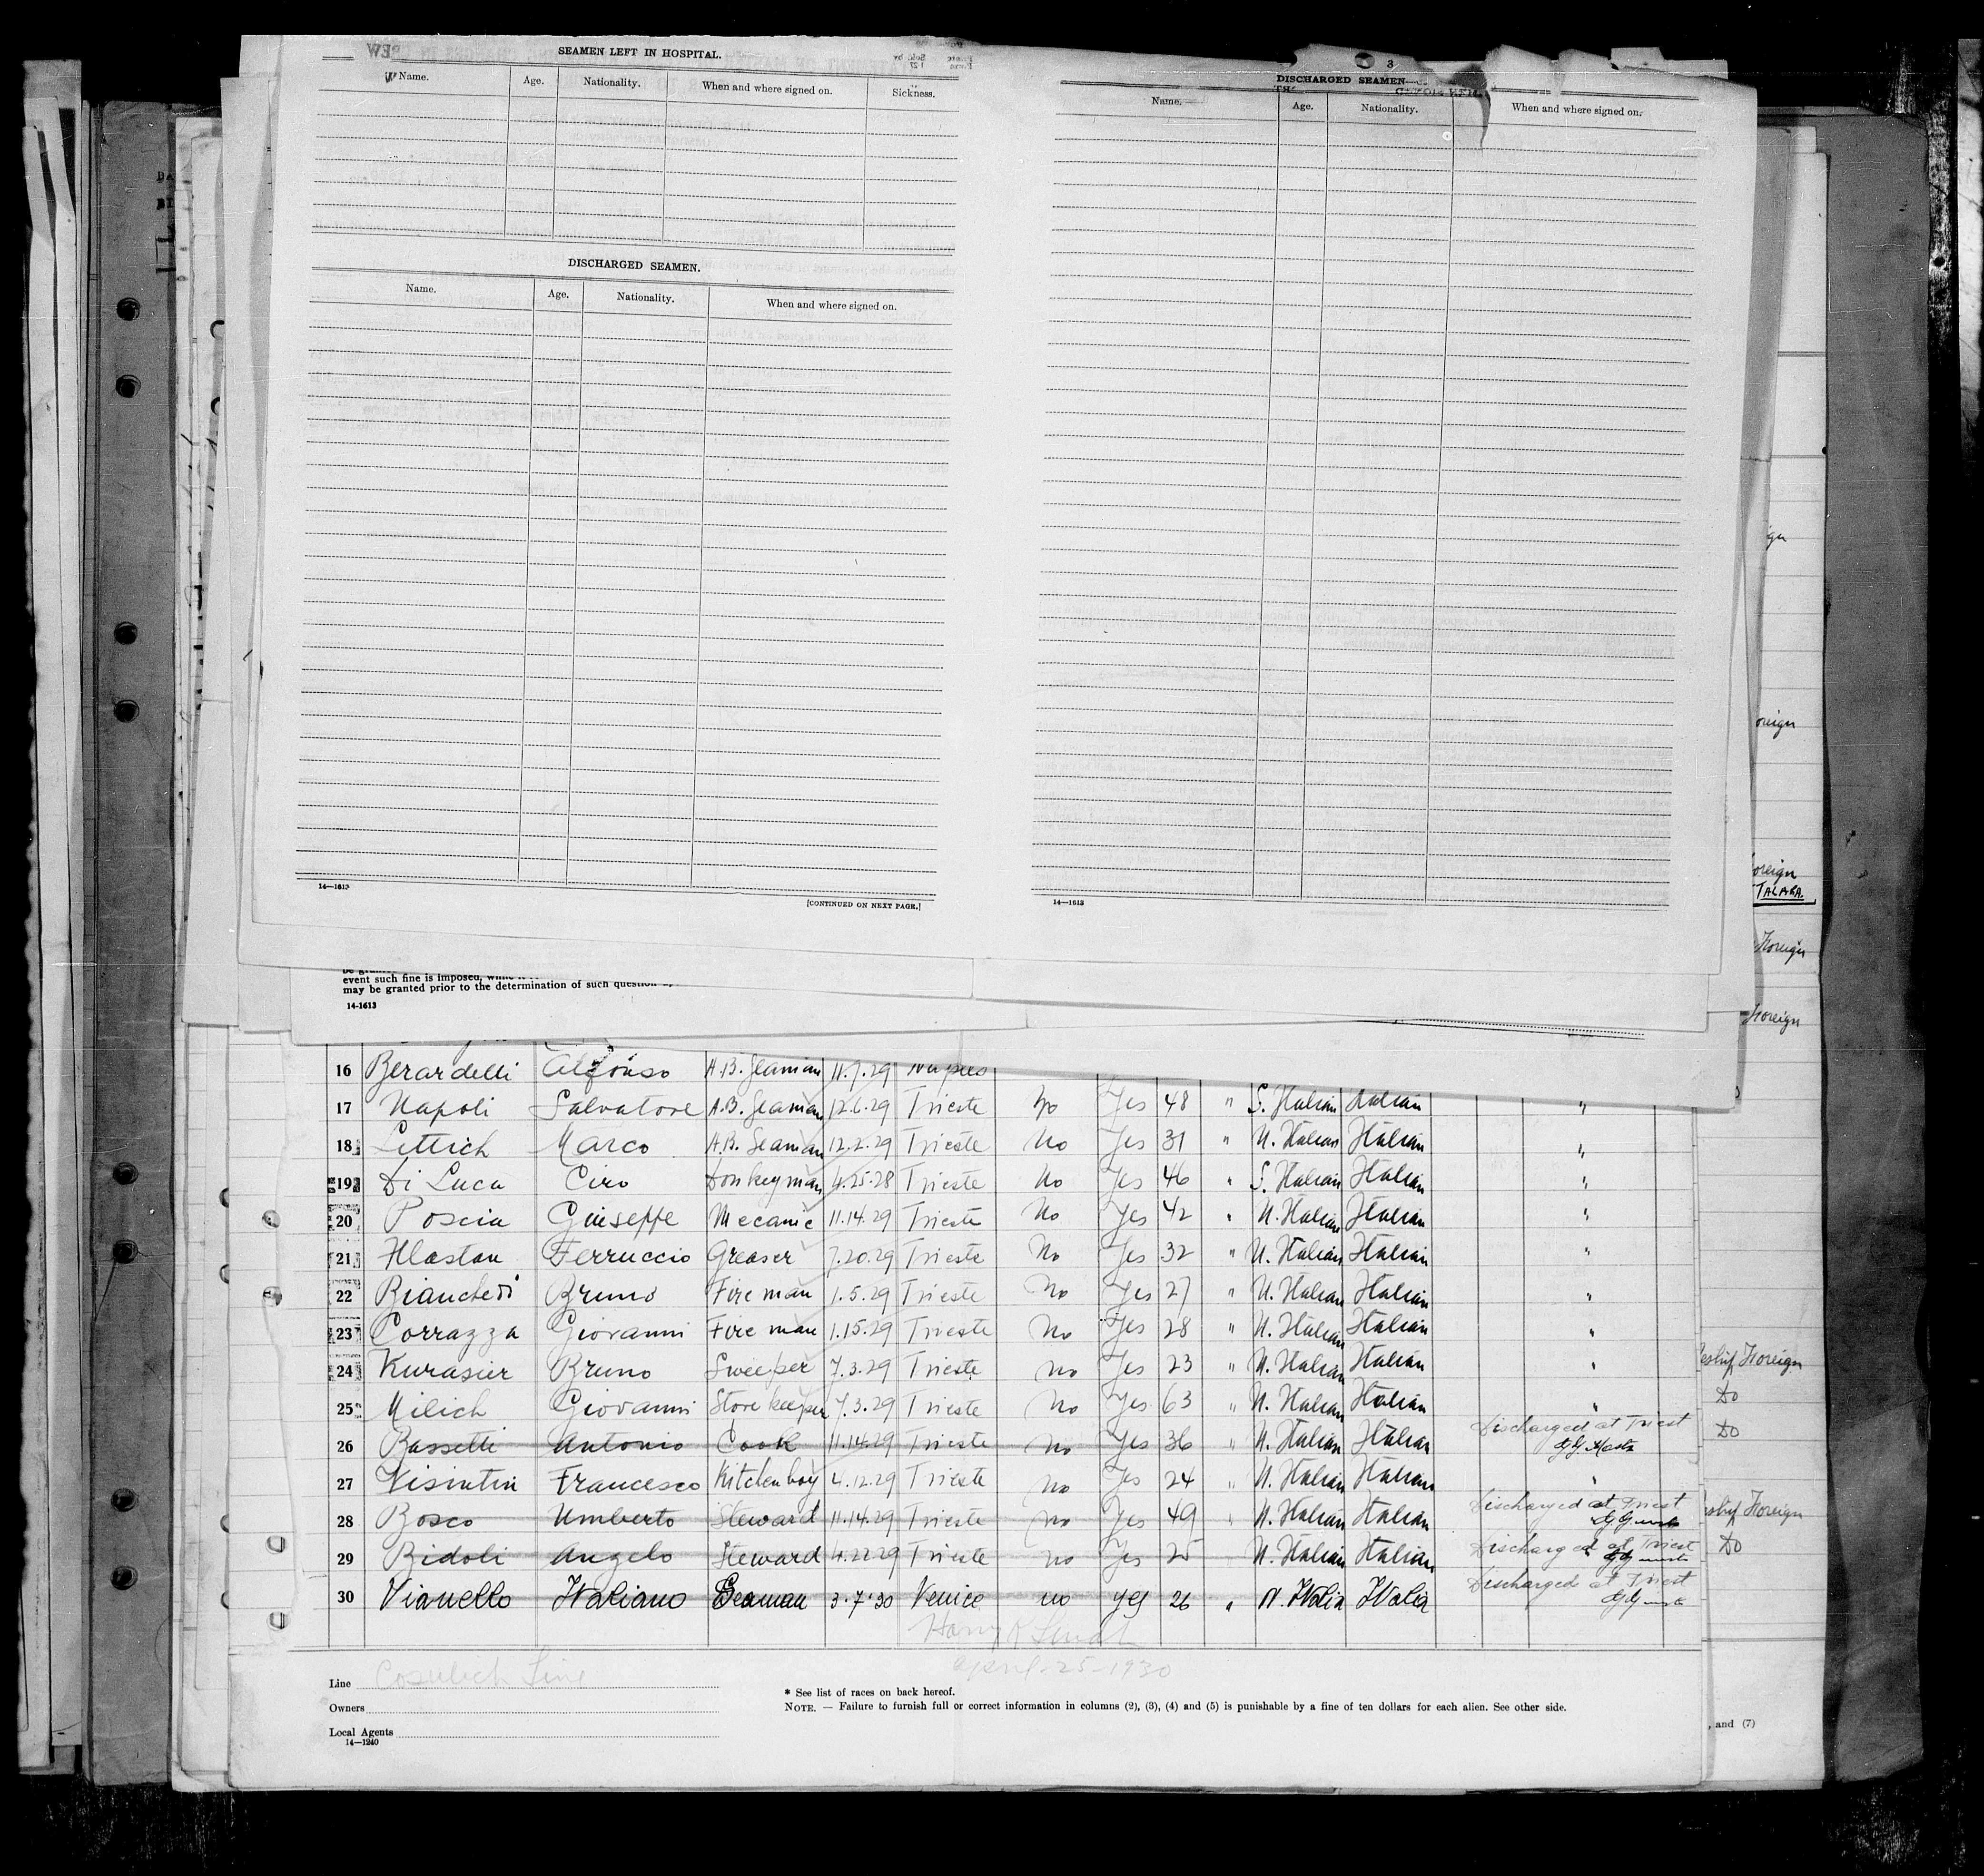 SEAMEN LEFT IN HOSPITAL.
Name. Age. Nationality. When and where signed on. Sickness.
DISCHARGED SEAMEN.
Name. Age. Nationality. When and where signed on.
14—1613
[CONTINUED ON NEXT PAGE.]
3
DISCHARGED SEAMEN
Name. Age. Nationality. When and where signed on.
14—1613
event such fine is imposed, while
may be granted prior to the determination of such question
14-1613
16 Berardelli Alfonso A.B. Seaman 11.9.29 Naples
17 Napoli Salvatore A.B. Seaman 12.6.29 Trieste No Yes 48 " S. Italian Italian "
18 Lettich Marco A.B. Seaman 12.2.29 Trieste No Yes 31 " N. Italian Italian "
19 Di Luca Ciro Donkeyman 4.25.28 Trieste No Yes 46 " S. Italian Italian "
20 Poscia Giuseppe Mecanic 11.14.29 Trieste No Yes 42 " N. Italian Italian "
21 Hlastan Ferruccio Greaser 7.20.29 Trieste No Yes 32 " N. Italian Italian "
22 Bianchedi Bruno Fireman 1.5.29 Trieste No Yes 27 " N. Italian Italian "
23 Corrazza Giovanni Fireman 1.15.29 Trieste No Yes 28 " N. Italian Italian "
24 Kurasier Bruno Sweeper 7.3.29 Trieste No Yes 23 " N. Italian Italian "
25 Milich Giovanni Storekeeper 7.3.29 Trieste No Yes 63 " N. Italian Italian "
26 Bassetti Antonio Cook 11.14.29 Trieste No Yes 36 " N. Italian Italian Discharged at Triest
27 Visintin Francesco Kitchenboy 4.12.29 Trieste No Yes 24 " N. Italian Italian "
28 Bosco Umberto Steward 11.14.29 Trieste No Yes 49 " N. Italian Italian Discharged at Triest
29 Bidoli Angelo Steward 4.22.29 Trieste No Yes 25 " N. Italian Italian Discharged at Triest
30 Vianello Italiano Seaman 3.7.30 Venice no yes 26 " N. Italia Italia Discharged at Triest
April-25-1930
Line Cosulich Line
Owners
Local Agents
14—1240
* See list of races on back hereof.
NOTE. — Failure to furnish full or correct information in columns (2), (3), (4) and (5) is punishable by a fine of ten dollars for each alien. See other side.
oreign
oreign
TALARA.
Foreign
Foreign
Foreign
Do
Do
Foreign
Do
, and (7)